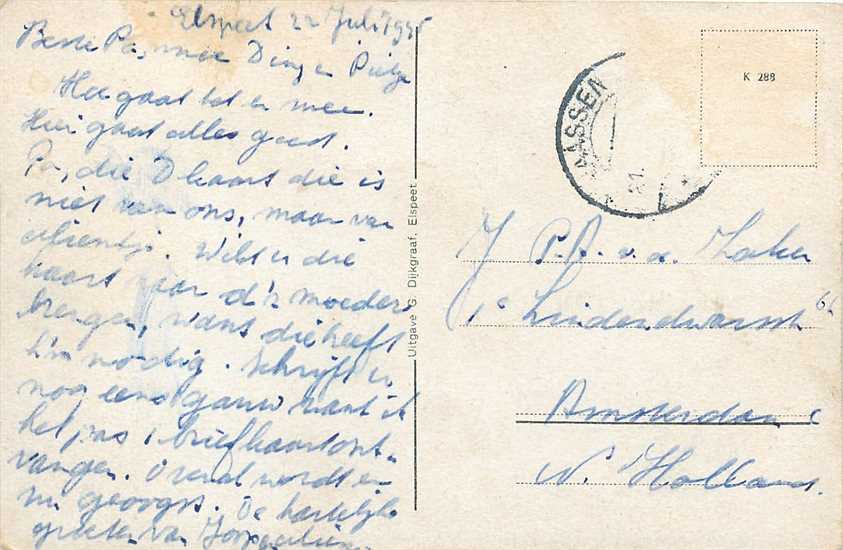 Elspeet 22 Juli
Beste Pa, mee Din en Pietje
Hoe gaat het er mee.
Hier gaat alles goed.
Pa, die D kaart die is
niet van ons, maar van
Wilt u die
kaart naar d'r moeder
brengen, want die heeft
h'm nodig. Schrijft u
nog eens gauw want ik
heb pas 1 briefkaart ont-
vangen. Overal wordt er
nu geoogst. De hartelijke
groeten van
Uitgave G. Dijkgraaf, Elspeet.
K 288
VAASSEN
21
J P.A. v.d.
1e Lindendwarsstr
Amsterdam c
N. Holland.